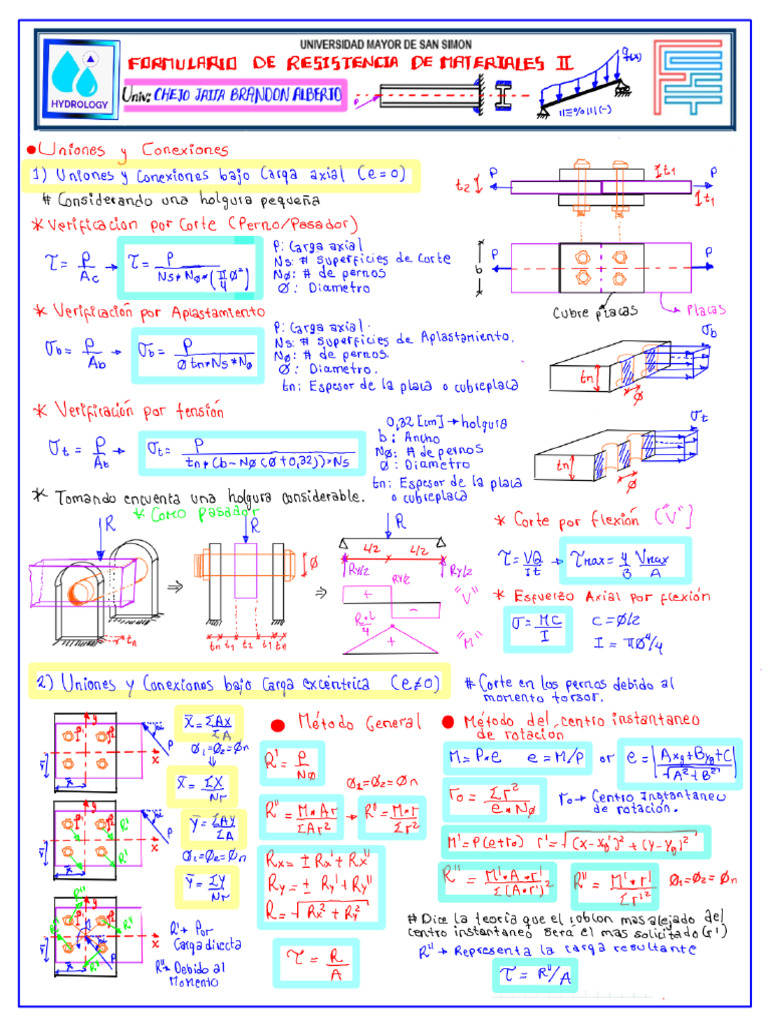 UNIVERSIDAD MAYOR DE SAN SIMON
FORMULARIO DE RESISTENCIA DE MATERIALES II
HYDROLOGY
Univ: CHEJO JAITA BRANDON ALBERTO
q(x)
• Uniones y Conexiones
1) Uniones y Conexiones bajo Carga axial (e=0)
# Considerando una holgura pequeña
* Verificacion por Corte (Perno/Pasador)
τ = P/Ac → τ = P/(Ns*NØ*(π/4 Ø²))
P: Carga axial
Ns: # Superficies de Corte
NØ: # de pernos
Ø: Diametro
P
t2
t1
P
t1
P
b
P
Cubre placas
Placas
* Verificación por Aplastamiento
σb = P/Ab → σb = P/(Ø tn*Ns*NØ)
P: Carga axial.
Ns: # Superficies de Aplastamiento.
NØ: # de pernos.
Ø: Diametro.
tn: Espesor de la placa o cubreplaca
σb
tn
Ø
* Verificación por tensión
σt = P/At → σt = P/(tn*(b-NØ(Ø+0,32))*Ns)
0,32 [cm] → holgura
b: Ancho
NØ: # de pernos
Ø: Diametro
tn: Espesor de la placa
o cubreplaca
σt
tn
Ø
* Tomando encuenta una holgura considerable.
* Como pasador
R
tn
⇒
R
Ø
tn t1 t2 t1 tn
⇒
R
L/2 L/2
Ry/2
Ry/2
Ry/2
+
-
"V"
R*L/4
+
"M"
* Corte por flexión ("V")
τ = VQ/It → τmax = 4/3 Vmax/A
* Esfuerzo Axial por flexión
σ = MC/I
C = Ø/2
I = πØ⁴/4
2) Uniones y Conexiones bajo Carga excéntrica (e≠0)
# Corte en los pernos debido al
momento torsor.
x̄ = ΣAx/ΣA
Ø1=Ø2=Øn
⇓
x̄ = Σx/Nr
ȳ = ΣAy/ΣA
Ø1=Ø2=Øn
ȳ = Σy/Nr
R' → Por
Carga directa
R" → Debido al
Momento
• Método General
R' = P/NØ
Ø1=Ø2=Øn
R" = M*Ar/ΣAr² → R" = M*r/Σr²
Rx = ± Rx' + Rx"
Ry = ± Ry' + Ry"
R = √(Rx² + Ry²)
τ = R/A
• Método del centro instantaneo
de rotación
M = P*e e = M/P or e = |Axg+Byg+C|/√(A²+B²)
r0 = Σr²/(e*NØ)
r0 → Centro Instantaneo
de rotación.
M' = P(e+r0) r' = √((x-xg')² + (y-yg)²)
R" = M'*A*r'/Σ(A*r')² R" = M'*r'/Σr'² Ø1=Ø2=Øn
# Dice la teoria que el roblon mas alejado del
centro instantaneo sera el mas solicitado (r')
R" → Representa la carga resultante
τ = R"/A